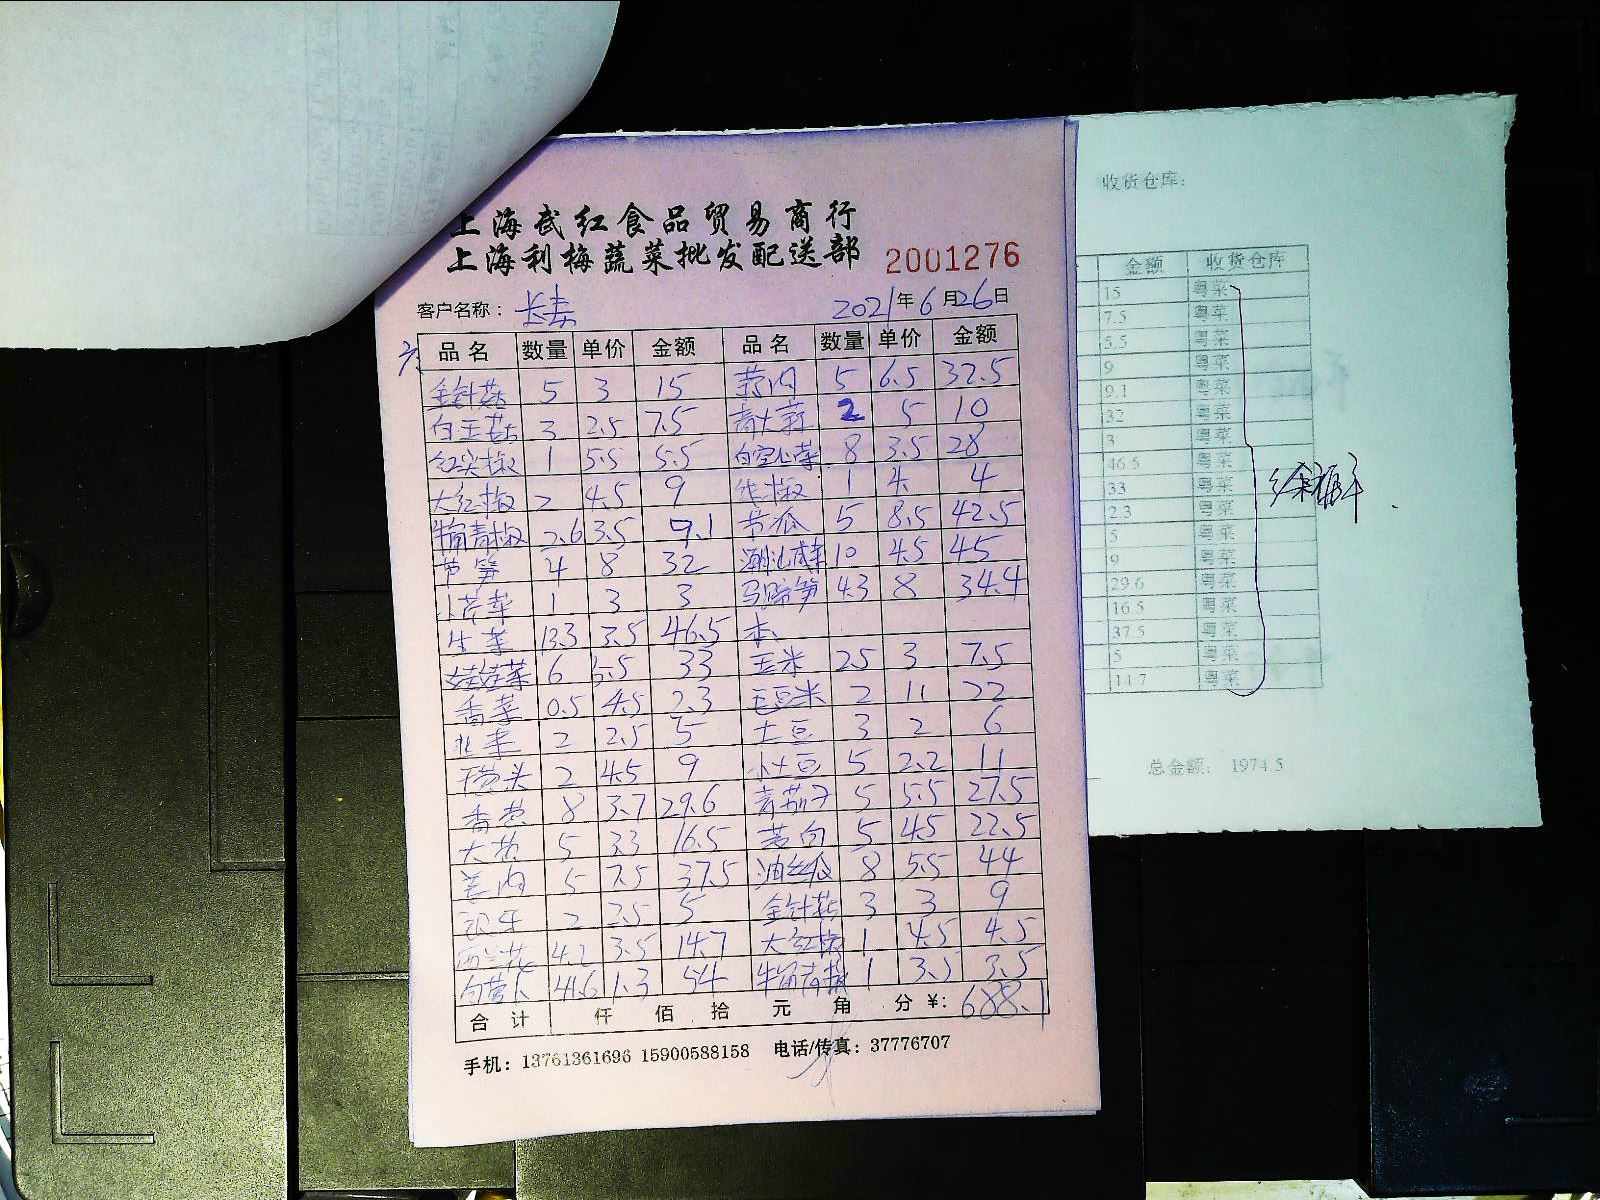 上海武红食品贸易商行
上海利梅蔬菜批发配送部 2001276
客户名称： 长寿 2021年6月26日
六
品名 数量 单价 金额 品名 数量 单价 金额
金针菇 5 3 15 蒜肉 5 6.5 32.5
白玉菇 3 2.5 7.5 青大蒜 2 5 10
红尖椒 1 5.5 5.5 8 3.5 28
大红椒 2 4.5 9 线椒 1 4. 4
牛角青椒 2.6 3.5 9.1 节瓜 5 8.5 42.5
芦笋 4 8 32 潮汕咸菜 10 4.5 45
小芹菜 1 3 3 4.3 8 34.4
生菜 13.3 3.5 46.5 本
娃娃菜 6 5.5 33 玉米 2.5 3 7.5
香菜 0.5 4.5 2.3 毛豆米 2 11 22
韭菜 2 2.5 5 土豆 3 2 6
干葱头 2 4.5 9 小土豆 5 2.2 11
香葱 8 3.7 29.6 青茄子 5 5.5 27.5
大葱 5 3.3 16.5 茭白 5 4.5 22.5
姜肉 5 7.5 37.5 油丝瓜 8 5.5 44
银牙 2 2.5 5 金针菇 3 3 9
西兰花 4.2 3.5 14.7 大红椒 1 4.5 4.5
白萝卜 41.6 1.3 54 牛角青椒 1 3.5 3.5
合计 仟 佰 拾 元 角 分 ¥: 688.1
手机：13761361696 15900588158 电话/传真：37776707
收货仓库：
金额 收货仓库
15 粤菜
7.5 粤菜
5.5 粤菜
9 粤菜
9.1 粤菜
32 粤菜
3 粤菜
46.5 粤菜
33 粤菜
2.3 粤菜
5 粤菜
9 粤菜
29.6 粤菜
16.5 粤菜
37.5 粤菜
5 粤菜
14.7 粤菜
总金额： 1974.5